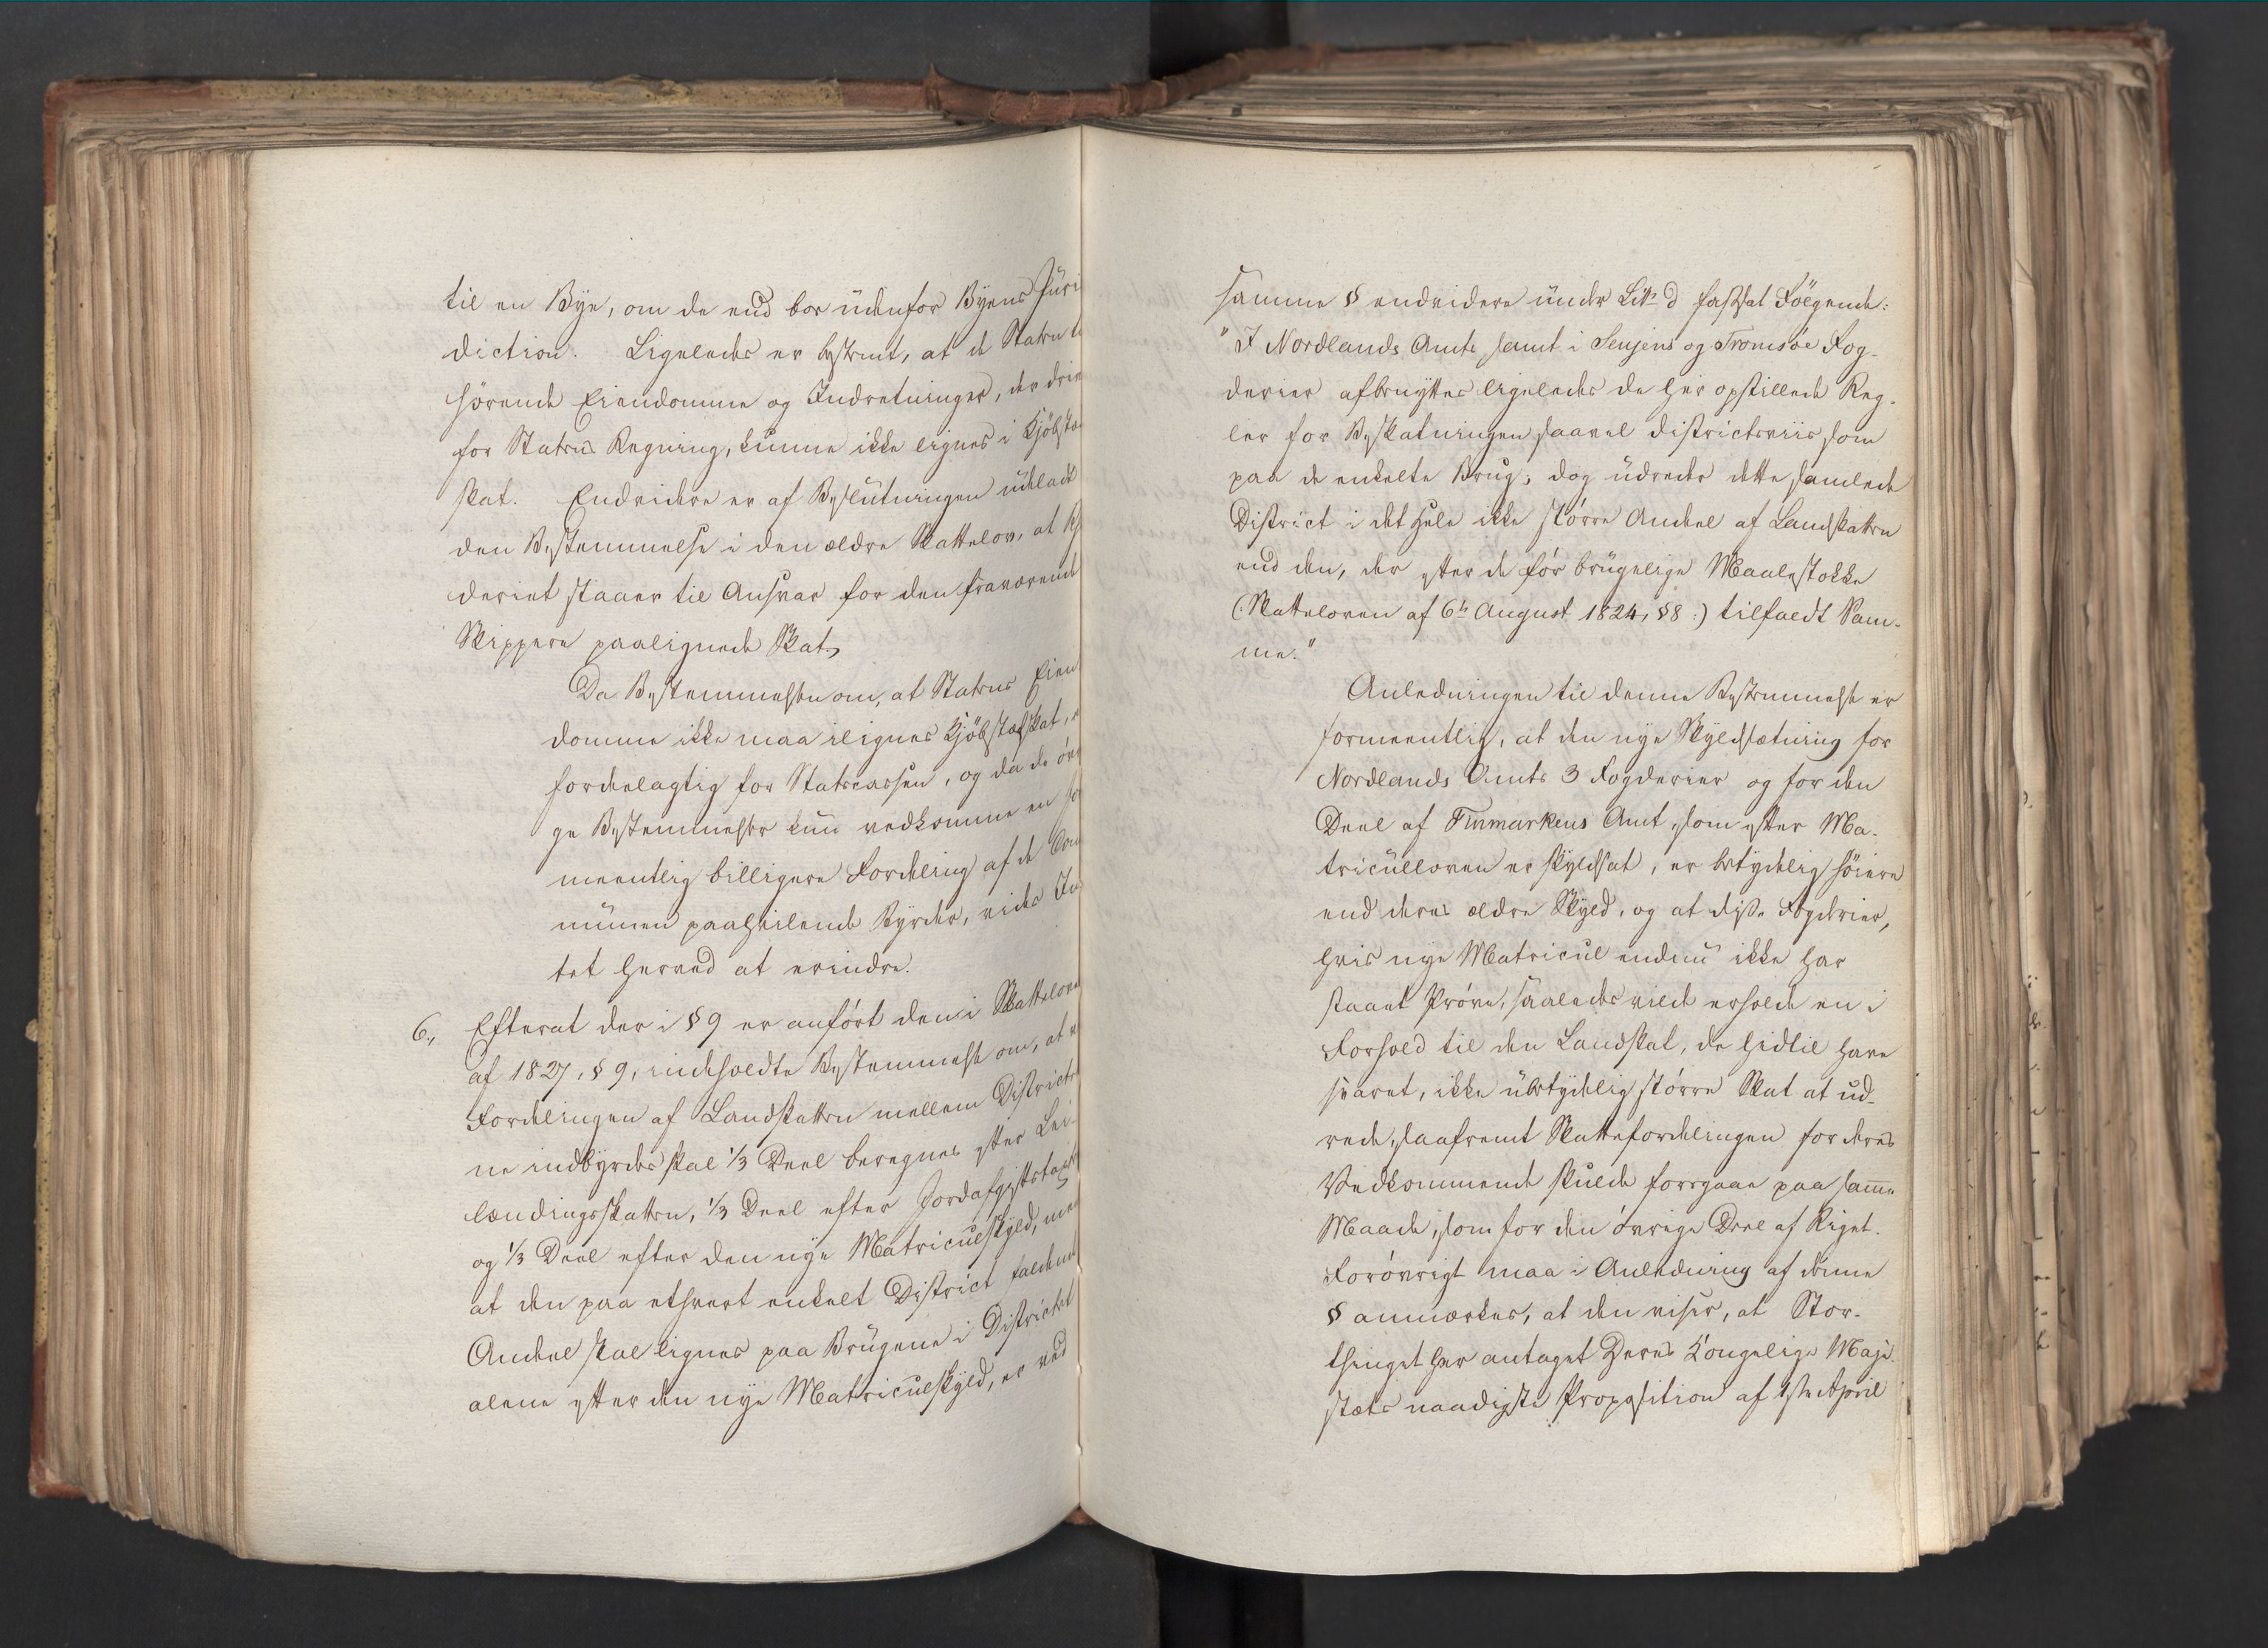 til en Bÿe, om de end bor udenfor Byens Juri
diction. Ligeledes er bestemt, at de Staten ti
hörende Eiendomme og Indretninger, der driv
for Statens Regning, kunne ikke lignes i Kjöbsta
skat. Endvidere er af Beslutningen udeladt
den Bestemmelse i den ældre Skattelov, at R
deriet staaer til Ansvar for den fraværende
Skippere paalignede Skat.
Da Bestemmelsen om, at Statens Eien
domme ikke maa ilignes Kjöbstadskat, e
fordeelagtig for Statscassen, og da de öv
ge Bestemmelser kun vedkomme en fo
meentlig billigere Fordeling af de Com
munen paahvilende Byrder, vides In
tet herved at erindre.
6., Efterat der i § 9 er anfört den i Skattelove
af 1827, § 9, indeholdte Bestemmelse om, at v
Fordelingen af Landskatten mellem District
ne indbyrdes skal 1/3 Deel beregnes efter Lei-
lændingsskatten, 1/3 Deel efter Jordafgiftstaxt
og 1/3 Deel efter den nye Matriculskyld, men
at den paa ethvert enkelt District faldende
Andeel skal lignes paa Brugene i Districtet
alene efter den nye Matriculskyld, er ved
samme § endvidere under Litr. d fastsat Fölgende:
"I Nordlands Amt samt i Senjens og Tromsöe Fog-
derier afbenyttes ligeledes de her opstillede Reg-
ler for Beskatningen saavel districtsviis som
paa de enkelte Brug; dog udredes dette samlede
District i det Hele ikke större Andeel af Landskatten
end den, der efter de för brugelige Maalestokke
(Skatteloven af 6te August 1824, § 8:) tilfaldt Sam-
me."
Anledningen til denne Bestemmelse er
formeentlig, at den nye Skyldsætning for
Nordlands Amts 3 Fogderier og for den
Deel af Finmarkens Amt, som efter Ma-
triculloven er skyldsat, er betydelig höiere
end deres ældre Skyld, og at disse Fogderier,
hvis nye Matricul endnu ikke har
staaet Pröve, saaledes vilde erholde en i
Forhold til den Landskat, de hidtil have
svaret, ikke ubetydelig större Skat at ud-
rede, saafremt Skattefordelingen for deres
Vedkommende skulde foregaae paa samme
Maade, som for den övrige Deel af Riget.
Forövrigt maa i Anledning af denne
§ anmærkes, at den viser, at Stor-
thinget har antaget Deres Kongelige Maje-
stæts naadigste Proposition af 1ste April